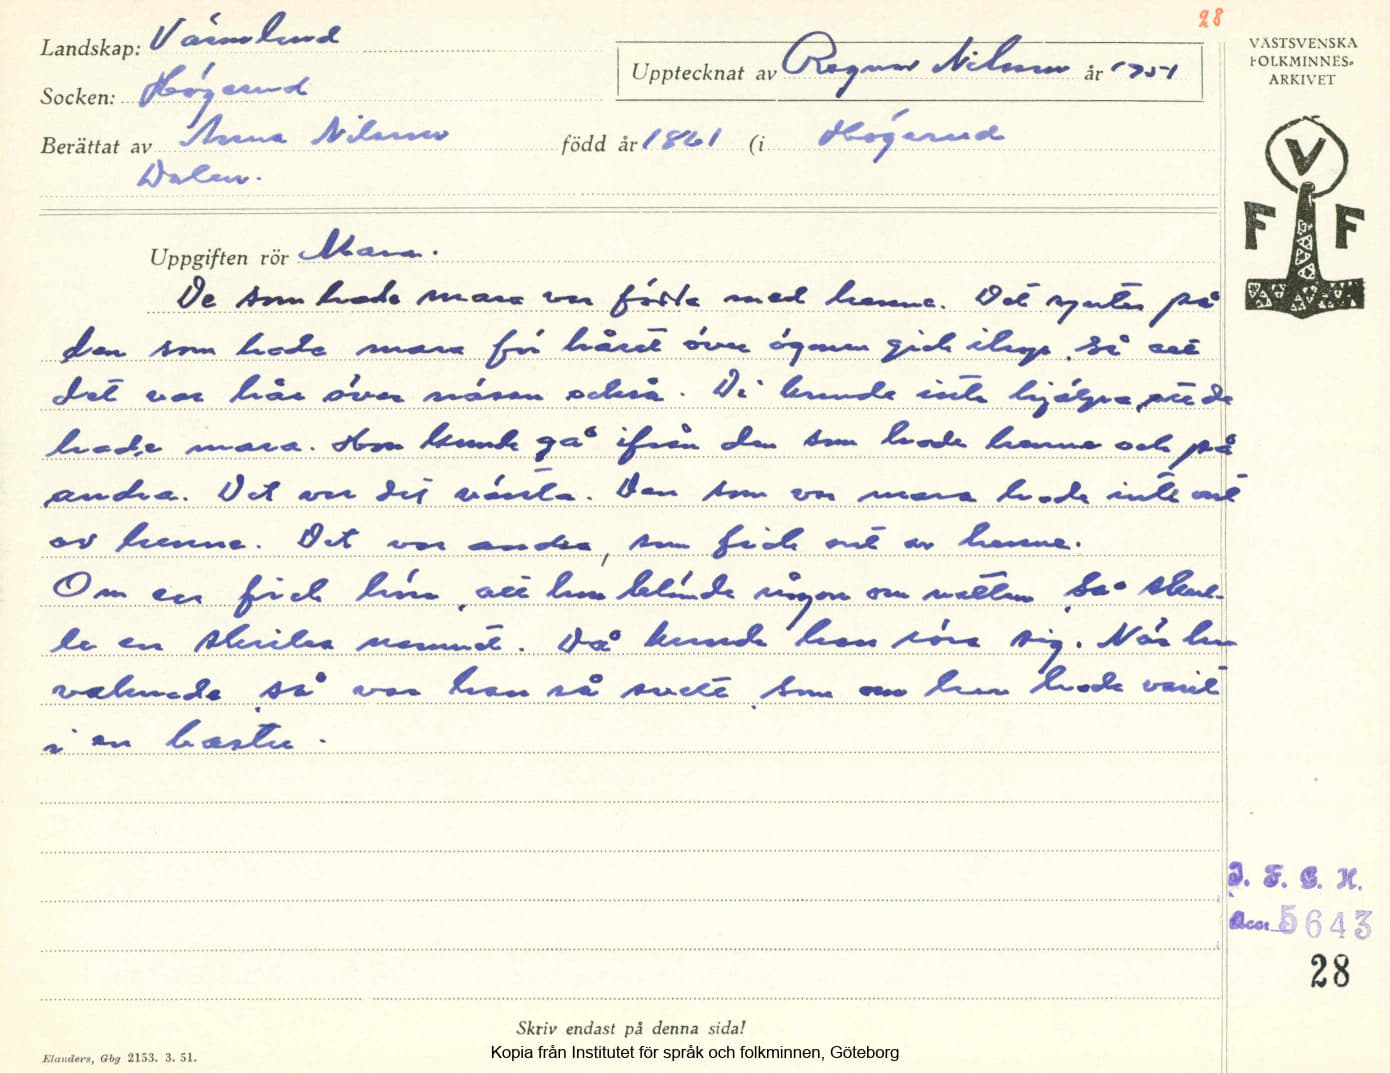 28
Landskap: Värmland
Socken: Högerud
Upptecknat av Ragnar Nilsson år 1951
Berättat av Anna Nilsson född år 1861 (i Högerud
Dalen.
VÄSTSVENSKA
FOLKMINNES-
ARKIVET
V
F F
Uppgiften rör Mara.
De som hade mara var födda med henne. Det syntes på
den som hade mara för håret över ögonen gick ihop, så att
det var hår över näsan också. Di kunde inte hjälpa, att de
hade mara. Hon kunde gå ifrån den som hade henne och på
andra. Det var det värsta. Den som var mara hade inte ont
av henne. Det var andra, som fick ont av henne.
Om en fick höra, att hon klämde någon om natten, så skul-
le en skrika namnet. Då kunde han röra sig. När han
vaknade, så var han så svett, som om han hade varit
i en bastu.
I. F. G. H.
Acc. 5643
28
Skriv endast på denna sida!
Elanders, Gbg 2153. 3. 51.
Kopia från Institutet för språk och folkminnen, Göteborg